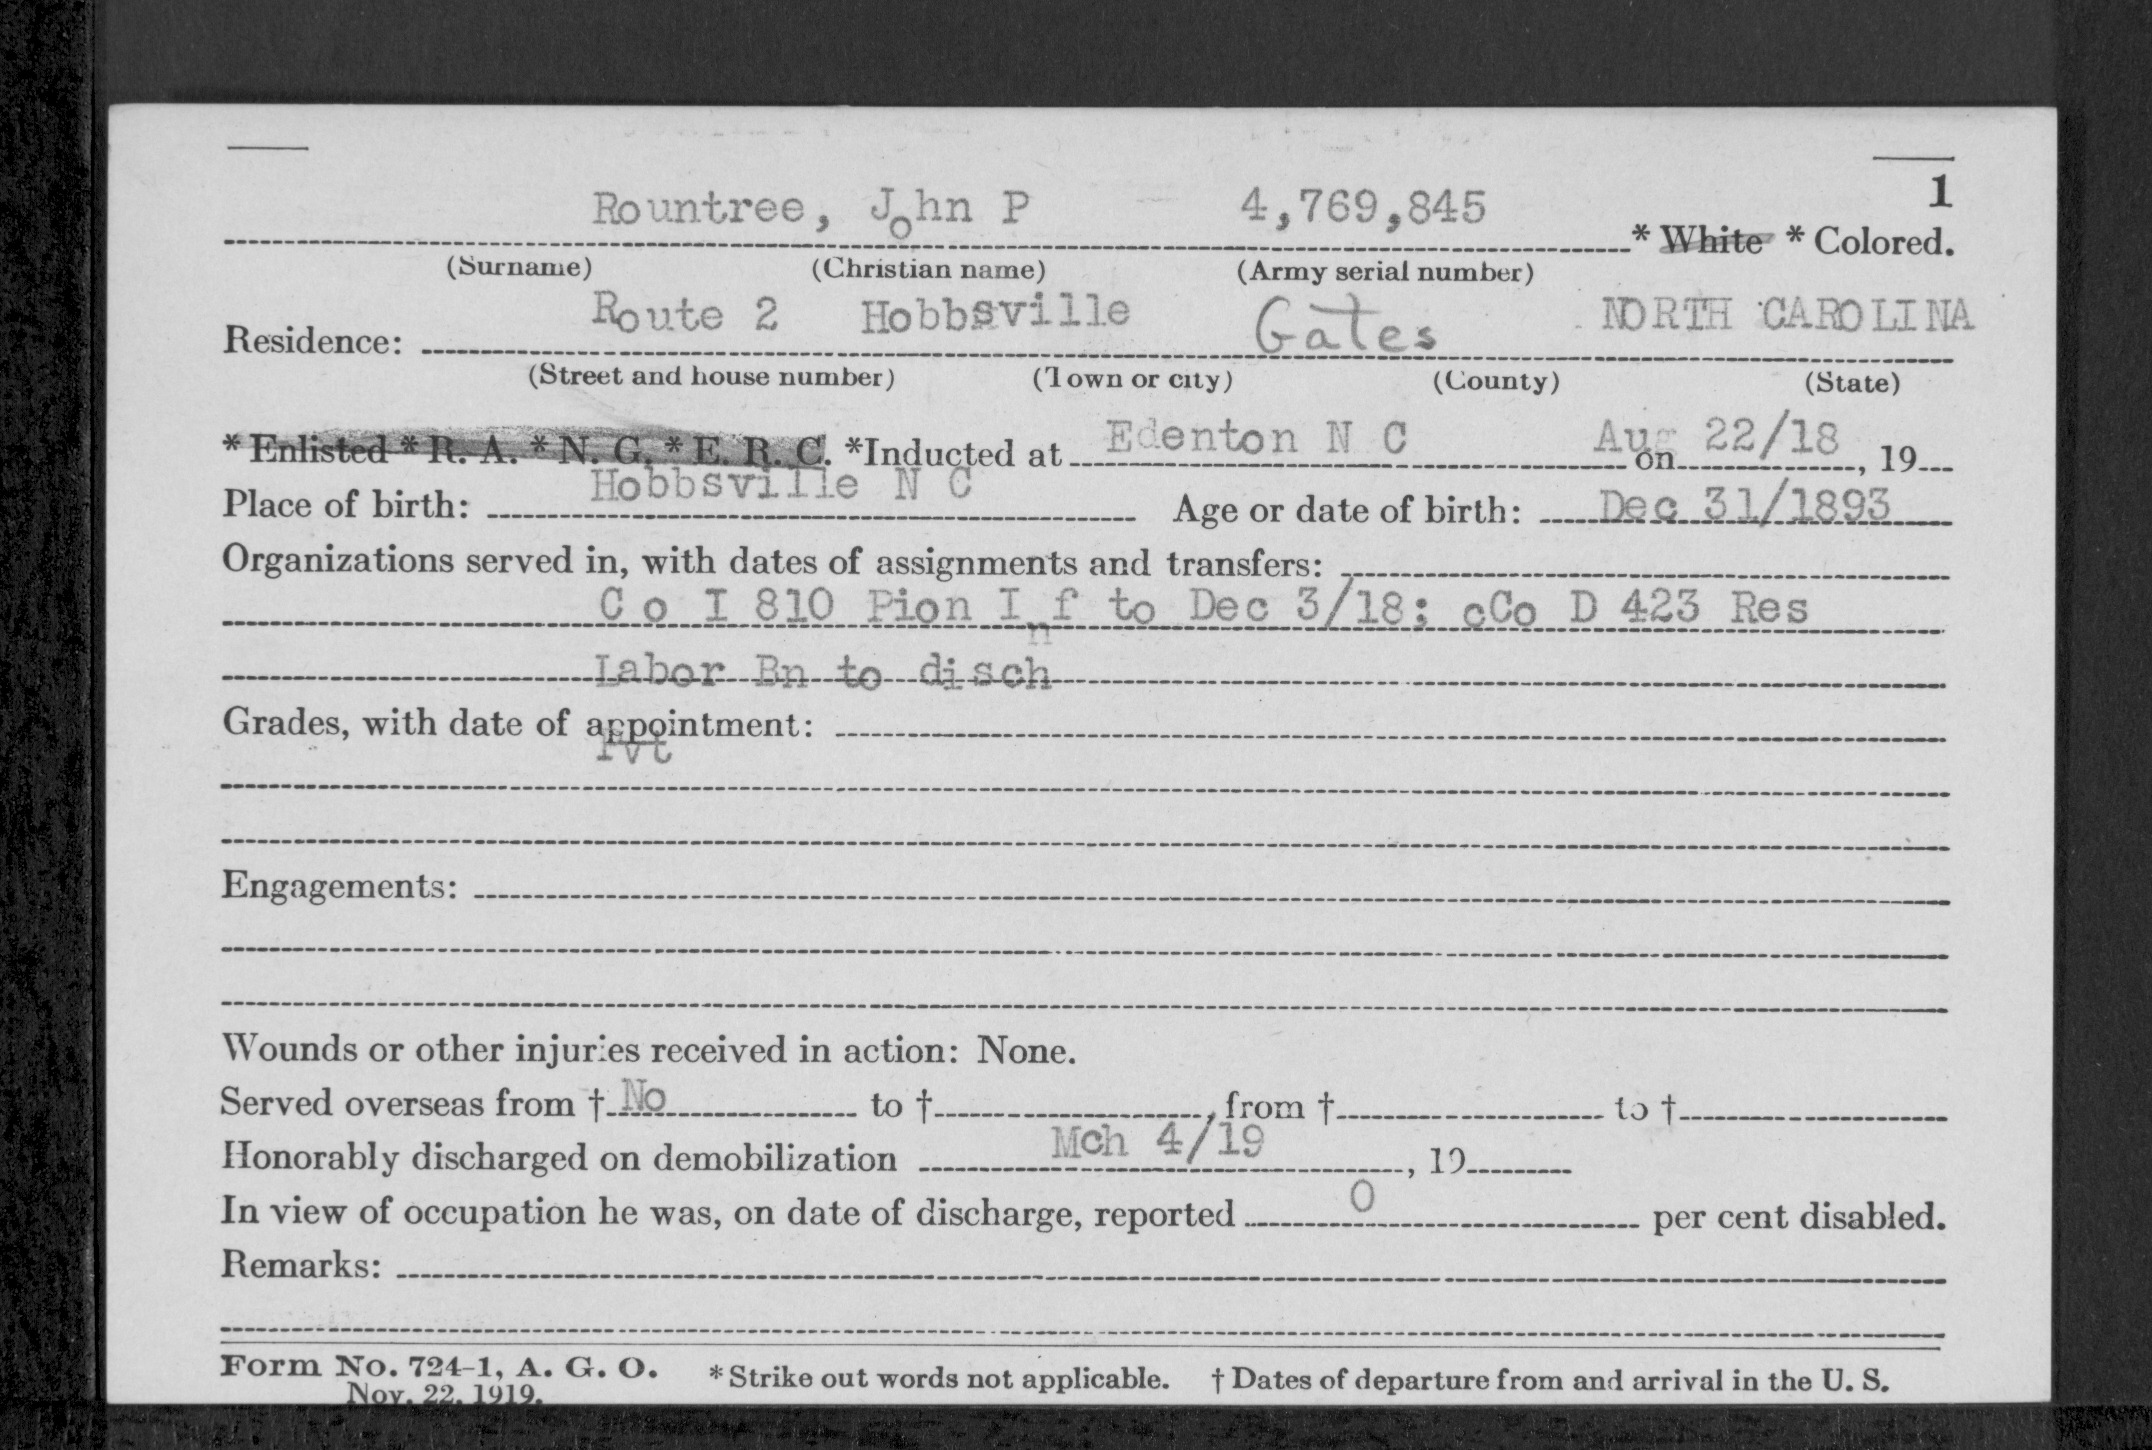 1
Rountree, John P 4,769,845 * White * Colored.
(Surname) (Christian name) (Army serial number)
Residence: Route 2 Hobbsville Gates NORTH CAROLINA
(Street and house number) (Town or city) (County) (State)
* Enlisted * R. A. * N. G. * E. R. C. *Inducted at Edenton N C on Aug 22/18, 19
Place of birth: Hobbsville N C Age or date of birth: Dec 31/1893
Organizations served in, with dates of assignments and transfers:
C o I 810 Pion Inf to Dec 3/18; cCo D 423 Res
Labor Bn to disch
Grades, with date of appointment:
Pvt
Engagements:
Wounds or other injuries received in action: None.
Served overseas from † No to †, from † to †
Honorably discharged on demobilization Mch 4/19, 19
In view of occupation he was, on date of discharge, reported 0 per cent disabled.
Remarks:
Form No. 724-1, A. G. O. * Strike out words not applicable. † Dates of departure from and arrival in the U. S.
Nov. 22, 1919.